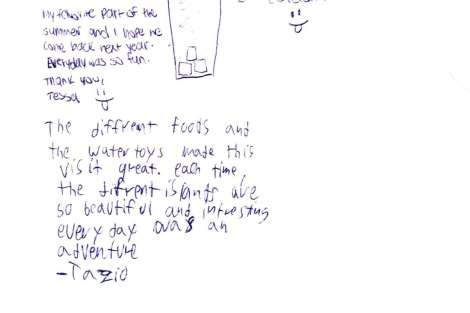 my favorite part of the
summer and I hope we
come back next year.
Everyday was so fun.
Thank you,
Tessa
The diffrent foods and
the water toys made this
visit great. each time,
the difrent islands are
so beautiful and intresting
every day was an
adventure
-Tazio